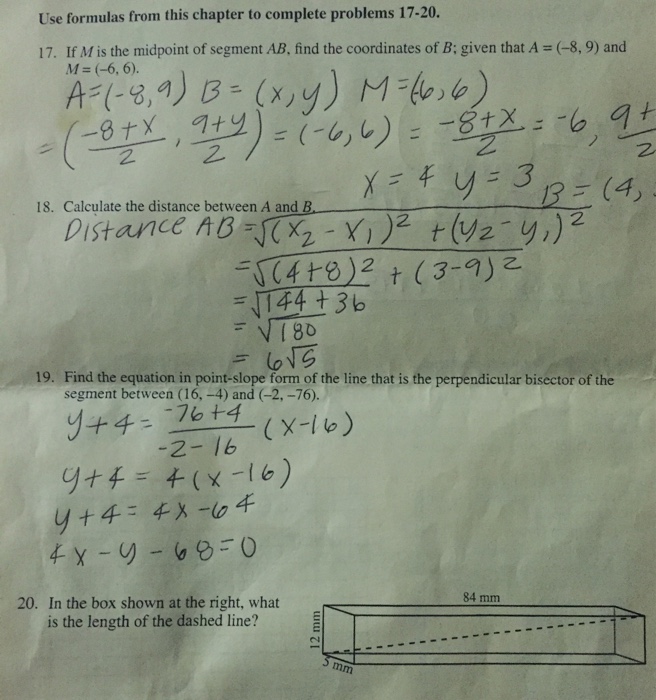 Use formulas from this chapter to complete problems 17-20.
17. If M is the midpoint of segment AB, find the coordinates of B; given that A = (–8, 9) and
M = (–6, 6).
A=(-8,9) B = (x,y) M=(-6,6)
= (-8+x/2, 9+y/2) = (-6,6) = -8+x/2 = -6, 9+/2
x = 4 y = 3 B = (4,
18. Calculate the distance between A and B.
Distance AB = √(x₂ - x₁)² + (y₂ - y₁)²
= √(4+8)² + (3-9)²
= √144 + 36
= √180
= 6√5
19. Find the equation in point-slope form of the line that is the perpendicular bisector of the
segment between (16, –4) and (–2, –76).
y+4 = -76+4/-2-16 (x-16)
y+4 = 4(x-16)
y+4 = 4x-64
4x-y-68=0
20. In the box shown at the right, what
is the length of the dashed line?
84 mm
12 mm
5 mm